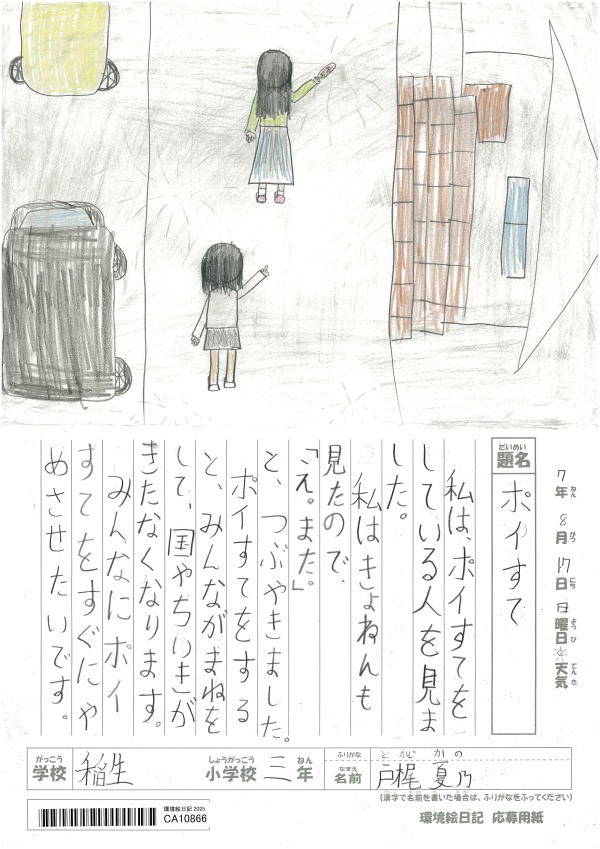 7年 8月 17日 日曜日 天気
ねん がつ にち ようび てんき
題名 ポイすて
だいめい
私は、ポイすてを
している人を見ま
した。
私はきょねんも
見たので、
「え。また。」
と、つぶやきました。
ポイすてをする
と、みんながまねを
して、国やちいきが
きたなくなります。
みんなにポイ
すてをすぐにや
めさせたいです。
がっこう しょうがっこう ねん ふりがな とかじ かの
学校 稲生 小学校 三年 名前 戸梶 夏乃
なまえ
(漢字で名前を書いた場合は、ふりがなをふってください)
環境絵日記 2025
CA10866
環境絵日記 応募用紙